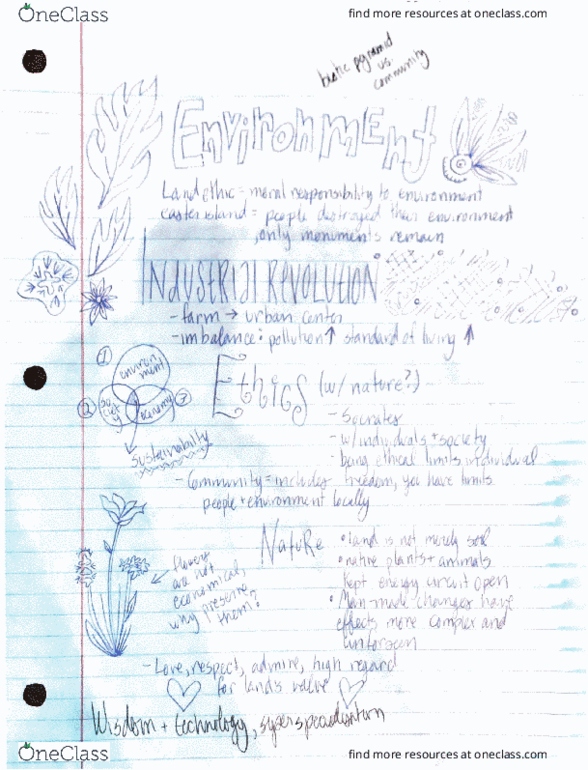 OneClass
find more resources at oneclass.com
biotic pyramid
vs.
community
Environment
Land ethic = moral responsibility to environment
easter island = people destroyed their environment
, only monuments remain
INDUSTRIAL REVOLUTION
- farm → urban center
- imbalance: pollution ↑ standard of living ↑
① environ
ment
② soc
iety
economy ③
sustainability
Ethics (w/ nature?)
- Socrates
- w/individuals + society
- being ethical limits individual
freedom, you have limits
- Community = includes
people + environment locally
NatuRe
• land is not merely soil
• native plants + animals
kept energy circuit open
• Man-made changes have
effects more complex and
unforseen
flowers
are not
economical,
why preserve
them?
- Love, respect, admire, high regard
for land's value
Wisdom + technology,
OneClass
find more resources at oneclass.com